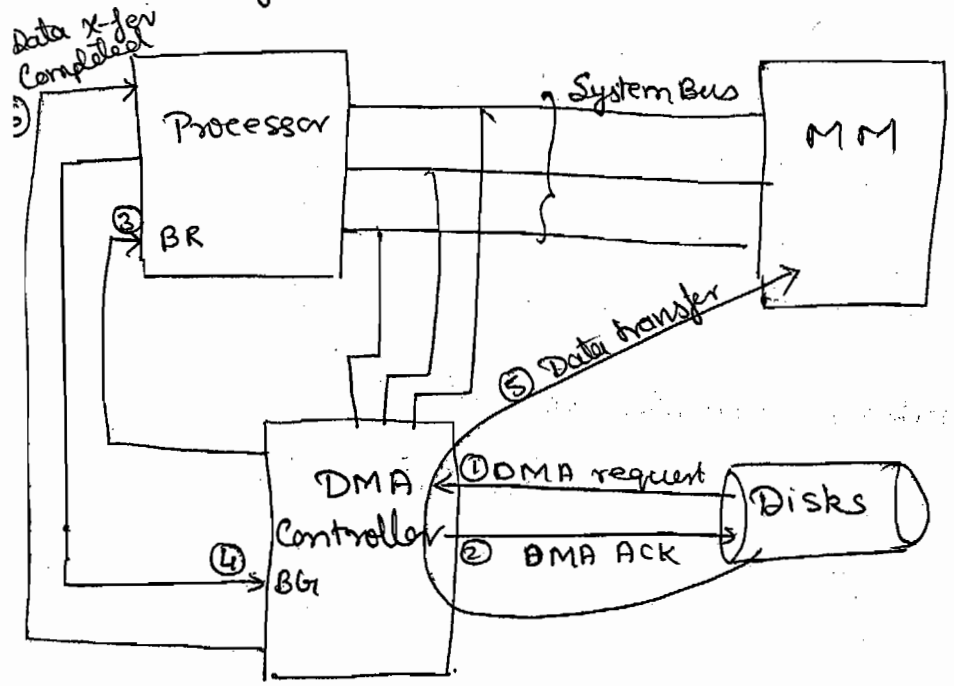 Data x-fer
Completed
Processor
System Bus
MM
③
BR
⑤ Data transfer
DMA
Controller
① DMA request
② DMA ACK
Disks
④
BG